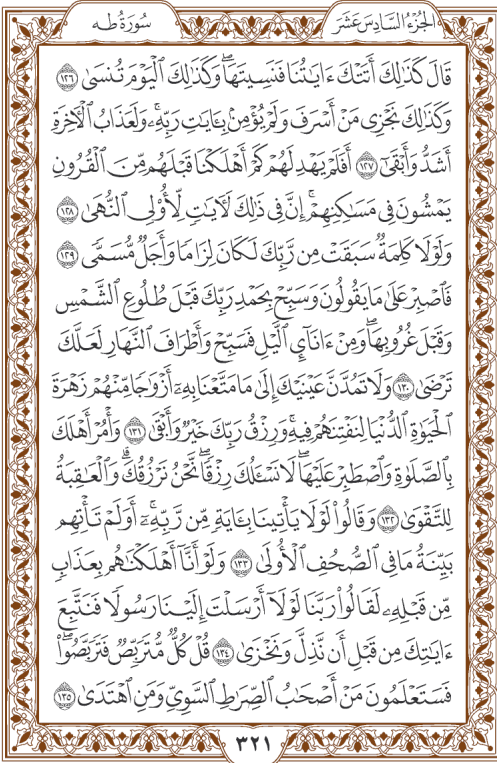 الجُزءُ السَّادِسَ عَشَرَ
سُورَةُ طه
قَالَ كَذَٰلِكَ أَتَتْكَ ءَايَـٰتُنَا فَنَسِيتَهَاۖ وَكَذَٰلِكَ ٱلْيَوْمَ تُنسَىٰ ١٢٦
وَكَذَٰلِكَ نَجْزِى مَنْ أَسْرَفَ وَلَمْ يُؤْمِنۢ بِـَٔايَـٰتِ رَبِّهِۦۚ وَلَعَذَابُ ٱلْـَٔاخِرَةِ
أَشَدُّ وَأَبْقَىٰٓ ١٢٧ أَفَلَمْ يَهْدِ لَهُمْ كَمْ أَهْلَكْنَا قَبْلَهُم مِّنَ ٱلْقُرُونِ
يَمْشُونَ فِى مَسَـٰكِنِهِمْۗ إِنَّ فِى ذَٰلِكَ لَـَٔايَـٰتٍ لِّأُو۟لِى ٱلنُّهَىٰ ١٢٨
وَلَوْلَا كَلِمَةٌ سَبَقَتْ مِن رَّبِّكَ لَكَانَ لِزَامًا وَأَجَلٌ مُّسَمًّى ١٢٩
فَٱصْبِرْ عَلَىٰ مَا يَقُولُونَ وَسَبِّحْ بِحَمْدِ رَبِّكَ قَبْلَ طُلُوعِ ٱلشَّمْسِ
وَقَبْلَ غُرُوبِهَاۖ وَمِنْ ءَانَآئِ ٱلَّيْلِ فَسَبِّحْ وَأَطْرَافَ ٱلنَّهَارِ لَعَلَّكَ
تَرْضَىٰ ١٣٠ وَلَا تَمُدَّنَّ عَيْنَيْكَ إِلَىٰ مَا مَتَّعْنَا بِهِۦٓ أَزْوَٰجًا مِّنْهُمْ زَهْرَةَ
ٱلْحَيَوٰةِ ٱلدُّنْيَا لِنَفْتِنَهُمْ فِيهِۚ وَرِزْقُ رَبِّكَ خَيْرٌ وَأَبْقَىٰ ١٣١ وَأْمُرْ أَهْلَكَ
بِٱلصَّلَوٰةِ وَٱصْطَبِرْ عَلَيْهَاۖ لَا نَسْـَٔلُكَ رِزْقًاۖ نَّحْنُ نَرْزُقُكَۗ وَٱلْعَـٰقِبَةُ
لِلتَّقْوَىٰ ١٣٢ وَقَالُوا۟ لَوْلَا يَأْتِينَا بِـَٔايَةٍ مِّن رَّبِّهِۦٓۚ أَوَلَمْ تَأْتِهِم
بَيِّنَةُ مَا فِى ٱلصُّحُفِ ٱلْأُولَىٰ ١٣٣ وَلَوْ أَنَّآ أَهْلَكْنَـٰهُم بِعَذَابٍ
مِّن قَبْلِهِۦ لَقَالُوا۟ رَبَّنَا لَوْلَآ أَرْسَلْتَ إِلَيْنَا رَسُولًا فَنَتَّبِعَ
ءَايَـٰتِكَ مِن قَبْلِ أَن نَّذِلَّ وَنَخْزَىٰ ١٣٤ قُلْ كُلٌّ مُّتَرَبِّصٌ فَتَرَبَّصُوا۟ۖ
فَسَتَعْلَمُونَ مَنْ أَصْحَـٰبُ ٱلصِّرَٰطِ ٱلسَّوِىِّ وَمَنِ ٱهْتَدَىٰ ١٣٥
٣٢١